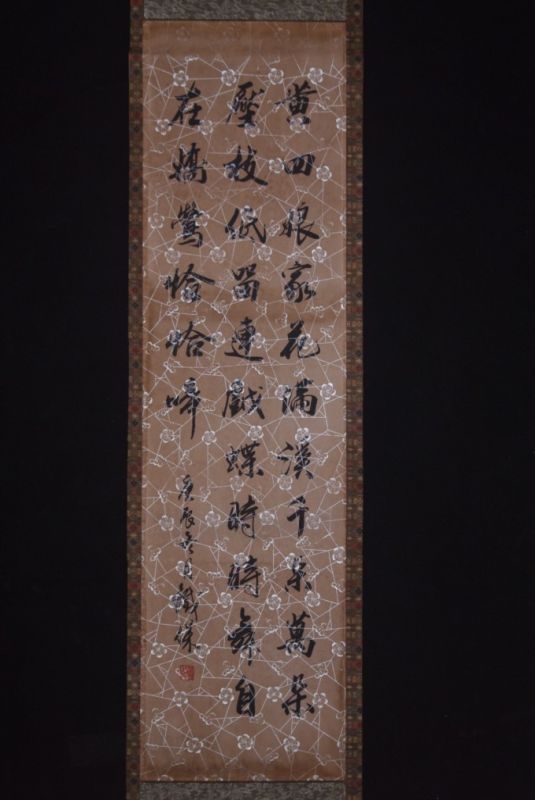 黄四娘家花滿溪千朵萬朵
壓枝低留連戲蝶時時舞自
在嬌鶯恰恰啼
庚辰月鐵保